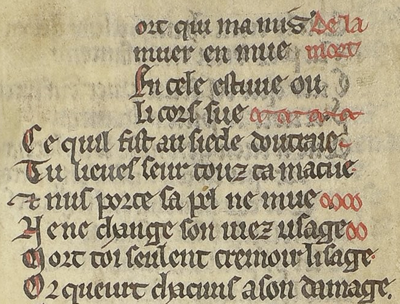 ort qui ma mis de la
muer en mue mort
En cele estuue ou
li cors sue
Ce quil fist au siecle doutrage
Tu lieues seur touz ta macue
nus porte sa pel ne mue
Ne ne change son viez usage
Mort toi seulent cremoir li sage
Or queurt chacuns a son damage.